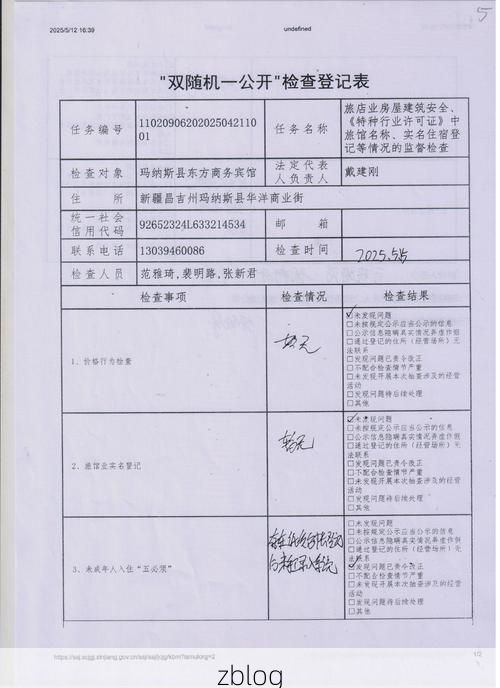 5
2025/5/12 16:39
undefined
"双随机一公开"检查登记表
任务编号
11020906202025042110
01
任务名称
旅店业房屋建筑安全、
《特种行业许可证》中
旅馆名称、实名住宿登
记等情况的监督检查
检查对象
玛纳斯县东方商务宾馆
法定代表
人负责人
戴建刚
住 所
新疆昌吉州玛纳斯县华洋商业街
统一社会
信用代码
92652324L633214534
邮 箱
联系电话
13039460086
检查时间
2025.5.5
检查人员
范雅琦,裴明路,张新君
检查事项
检查情况
检查结果
1、价格行为检查
暂无
☑未发现问题
□未按规定公示应当公示的信息
□公示信息隐瞒真实情况弄虚作假
□通过登记的住所（经营场所）无
法联系
□发现问题已责令改正
□不配合检查情节严重
□未发现开展本次抽查涉及的经营
活动
□发现问题待后续处理
□其他
2、旅馆业实名登记
暂无
☑未发现问题
□未按规定公示应当公示的信息
□公示信息隐瞒真实情况弄虚作假
□通过登记的住所（经营场所）无
法联系
□发现问题已责令改正
□不配合检查情节严重
□未发现开展本次抽查涉及的经营
活动
□发现问题待后续处理
□其他
3、未成年人入住"五必须"
□未发现问题
□未按规定公示应当公示的信息
□公示信息隐瞒真实情况弄虚作假
□通过登记的住所（经营场所）无
法联系
☑发现问题已责令改正
□不配合检查情节严重
□未发现开展本次抽查涉及的经营
活动
□发现问题待后续处理
□其他
1/2
zblog